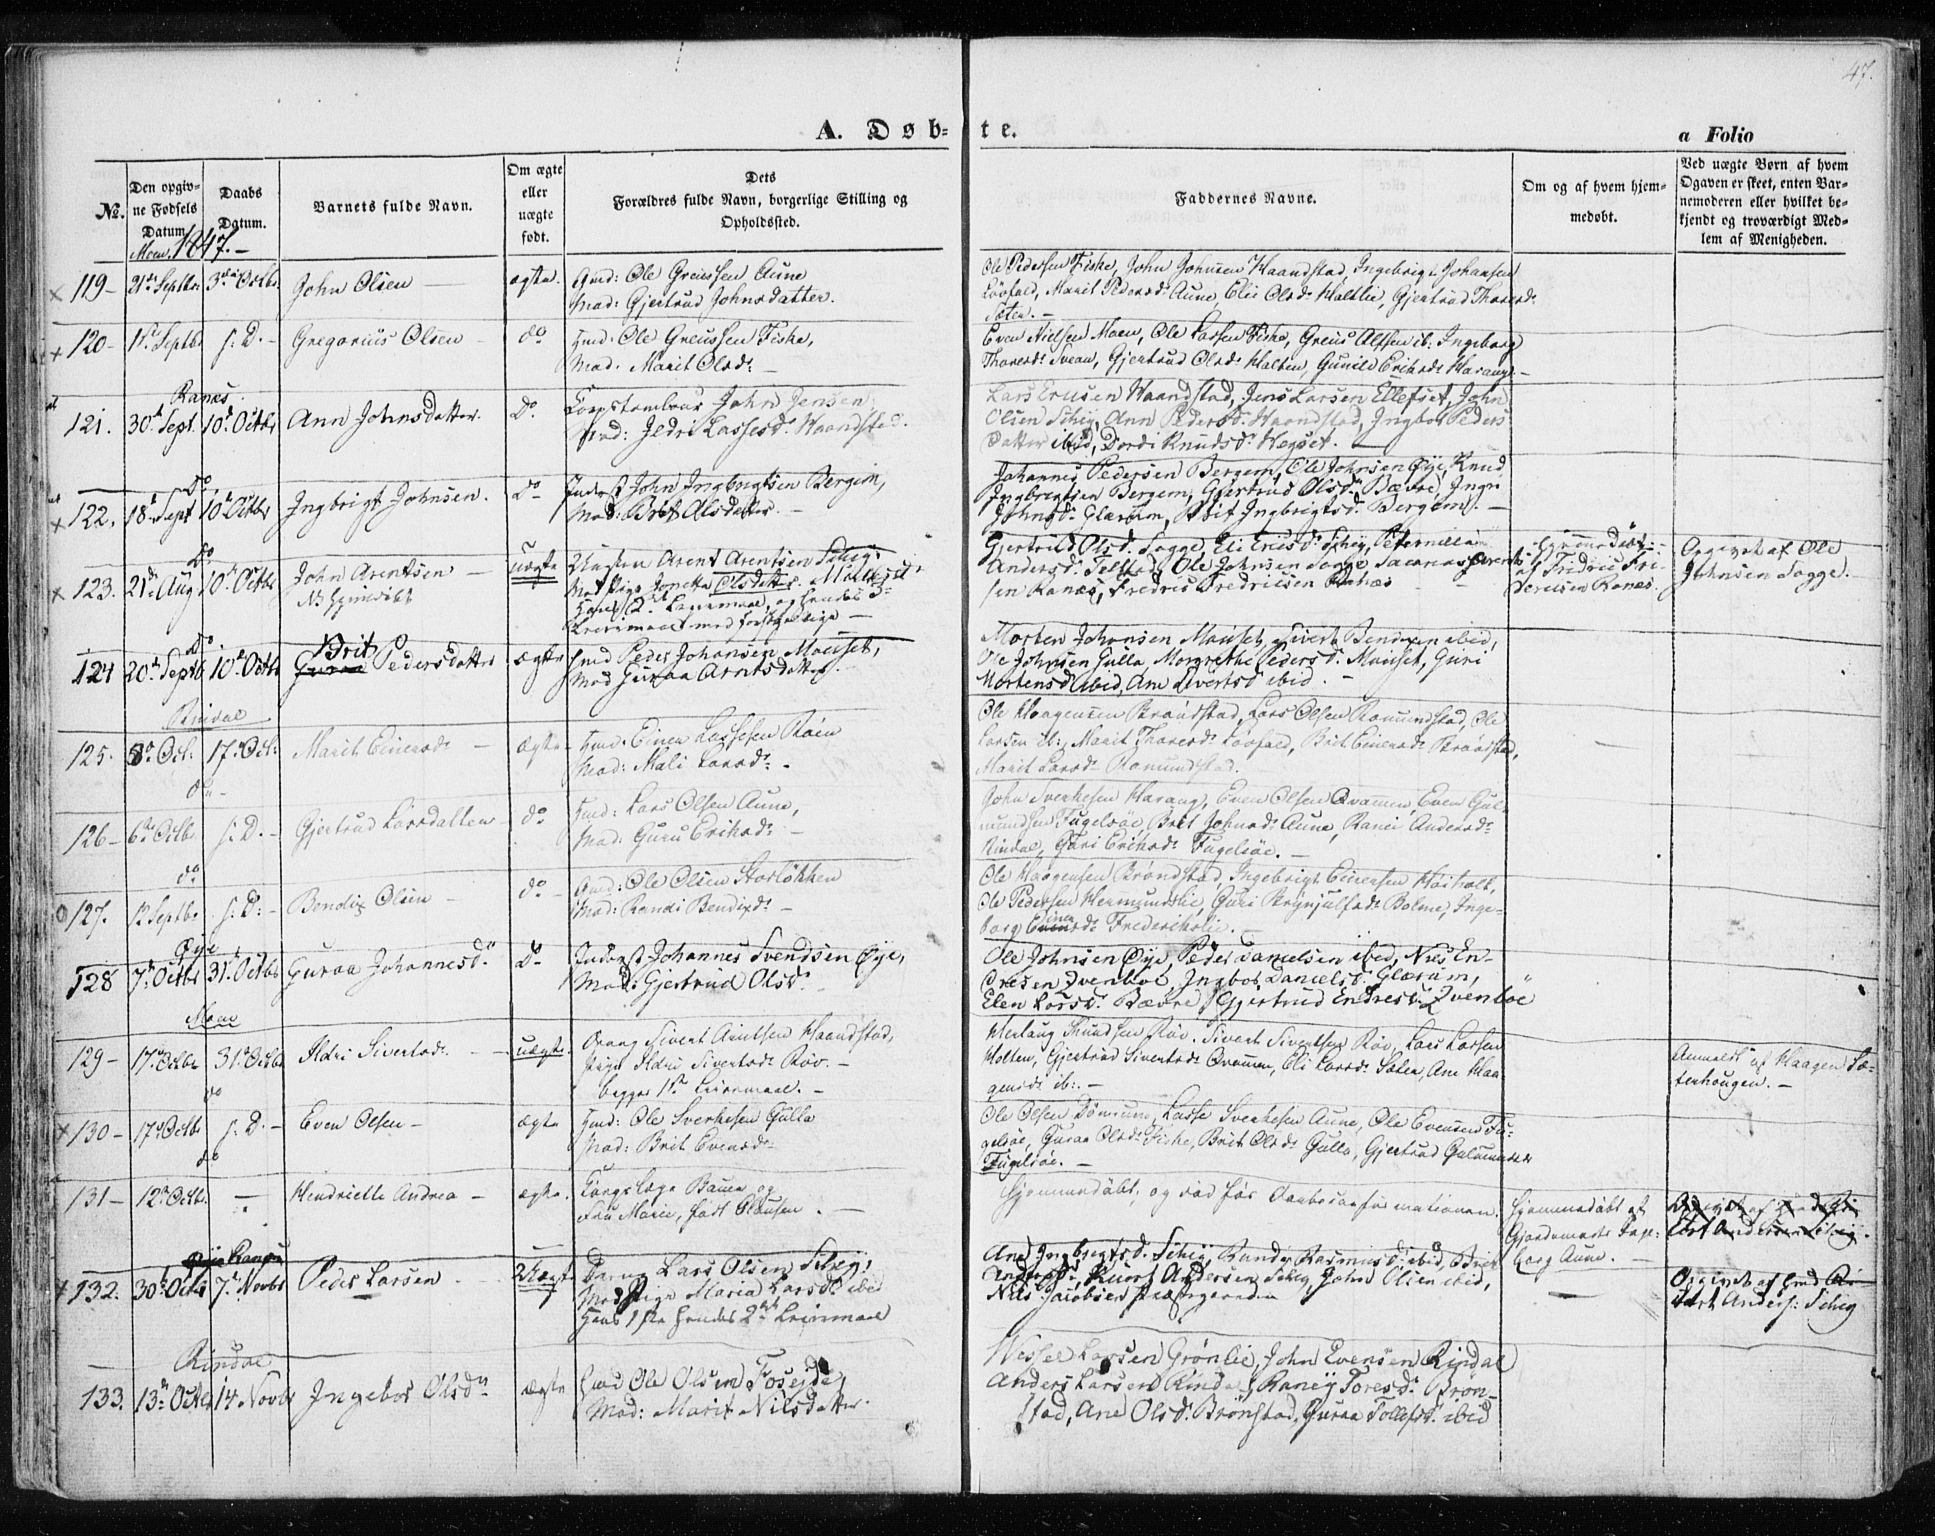 47.
A. Døb-te.
a Folio
No.
Den opgiv-
ne Fødsels
Datum.
Daabs
Datum.
Barnets fulde Navn.
Om ægte
eller
uægte
født.
Dets
Forældres fulde Navn, borgerlige Stilling og
Opholdssted.
Faddernes Navne.
Om og af hvem hjem-
medøbt.
Ved uægte Børn af hvem
Opgaven er skeet, enten Bar-
nemoderen eller hvilket be-
kjendt og troværdigt Med-
lem af Menigheden.
Moen. 1847. -
119- 21de Septbr 3die Octbr John Olsen ægte.
Gmd: Ole Greussen Aune
Mod: Gjertrud Johnsdatter.
Ole Pedersen Fiske, John Johnsen Haandstad, Ingebrigt Johansen
Løvfald, Marit Pedersd: Aune, Eli Olsd: Haltlie, Gjertrud Thoresd:
120- 1ste Septbr s. D. - Gregorius Olsen do
Hmd: Ole Greussen Fiske,
Mod. Marit Olsd: -
Even Nielsen Moen, Ole Lassen Fiske, Greus Alfsen ib: Ingeborg
Thoresd: Svean, Gjertrud Olsd: Halten, Gunild Eriksd: Harang. -
Ranes.
121. 30te Sept. 10de Octbr Ann Johnsdatter. Do.
Corpstambour John Jensen
Mod: Ildri Lassesd: Haandstad.
Lars Ericsen Haandstad, Jens Larsen Ellefset, John
Olsen Schig, Ann Pedersd: Haandstad, Ingbor Peders
Datter ibid, Dordi Knudsd: Hegset.
Do
122. 18de Sept 10de Octbr Ingbrigt Johnsen. Do
Inderst John Ingbrigtsen Bergem,
Mod: Brit Olsdatter. -
Johannes Pedersen Bergem, Ole Johnsen Øye, Knud
Ingbrigtsen Bergem, Gjertrud Olsd: Bævre, Ingri
Johnsd: Glærum, Brit Ingbrigtsd: Bergem. -
Do
123. 21de Aug 10de Octbr John Arentsen - uægte
N. hjemdøbt
Ungkarl Arent Arentsen Schig,
Mod Pige Jonetta Olsdatter
Gjertrud Olsd: Sogge, Eli Ericsd: Schig, Peternilla
Andersd: Ole Johnsen Sogge,
sen Ranæs, Fredric Fredricsen Ranæs
Hjemmedøbt
af Fredric Fre-
dericsen Ranæs.
Opgivet af Ole
Johnsen Sogge.
Do
Brit
124 20de Septb 10de Octb Guraa Pedersdatter ægte
Hmd Peder Johansen Mauset,
Mod Guraa Arntsdatter.
Morten Johansen Mauset, Sivert Bendixen ibid,
Ole Johnsen Gulla, Margrethe Pedersd: Mauset, Guri
Mortensd: ibid, Ane Sivertsd: ibid. -
Rindal
125. 8de Oct: 17de Oct: Marit Einersd: - ægte -
Hmd: Einer Lassesen Røen
Mod: Mali Larsd: -
Ole Haagensen Brøndstad, Lars Olsen Romundstad, Ole
Larsen ib:, Marit Thoresd: Løvfald, Brit Einersd: Brøndstad,
Marit Larsd: Romundstad.
do -
126- 6te Octbr s. D. - Gjertrud Larsdatter - do -
Hmd: Lars Olsen Aune,
Mod: Guru Eriksd: -
John Sverkesen Harang, Even Olsen Qvammen, Even Gul-
mundsen Fugelsøe, Brit Johnsd: Aune, Ranei Andersd:
Rindal, Guri Eriksd: Fugelsøe. -
do
127. 12 Septbr s. D: - Bendix Olsen - do -
Gmd: Ole Olsen Storløkken
Mod: Randi Bendixd: -
Ole Haagensen Brøndstad, Ingebrigt Einersen Høiholt,
Ole Pedersen Hermundslie, Guri Brynjulfsd: Bolme, Inge-
borg Einersd: Frederikslie. -
Øye
128 7de Octbr 31te Octbr Guraa Johannesd: Do
Inderst Johannes Svendsen Øye,
Mod: Gjertrud Olsd:
Ole Johnsen Øye, Peder Danielsen ibid, Niels En-
dresen Tvenboe, Ingbor Danielsd: Glærum,
Elen Larsd: Bævre, Gjertrud Endresd: Tvenboe
Moen
129- 17de Octbr 31te Octbr Ildri Sivertsd: - uægte.
Dreng Sivert Arntsen Haandstad,
Pige Ildri Sivertsd: Røv. -
begges 1ste Leiermaal. -
Herlaug Knudsen Røv. Sivert Sivertsen Røv, Lars Larsen
Holten, Gjertrud Sivertsd: Qvammen, Eli Larsd: Sæter, Ane Haa-
gensd: ib:. -
Anmeldt af Haagen Sæ-
terhougen. -
do
130- 17de Octbr s. D. - Even Olsen - ægte
Hmd: Ole Sverkesen Gulla
Mod: Brit Evensd:
Ole Olsen Lasse Sverkesen Aune, Ole Evensen Fu-
gelsøe, Guraa Olsd: Fiske, Brit Olsd: Gulla, Gjertrud Gulmundsd:
Fugelsøe. -
do
131- 12te Octbr - Hendriette Andrea - ægte.
Corpslæge Bauer og
Fru Marie, født Clausen. -
hjemmedøbt, og død før Daabsconfirmationen.
Hjemmedøbt af
Gjordemoder Inge-
borg Aune.
Ranæs
132. 30te Octbr 7de Novbr Peder Larsen - Uægte
Dreng Lars Olsen Schig,
Mod Pige Maria Larsd: ibid
Hans 1ste hendes 2det Leiermaal
Ane Ingbrigtsd: Schig, Rundi Rasmusd: ibid, Brit
Andersd:, Andersen Schig, John Olsen ibid,
Nils Jacobsen
Opgivet af Gmd
Anders: Schig
Rindal
133. 13de Octbr 14 Novbr Ingebor Olsdr ægte
Hmd Ole Olsen Foseide,
Mod: Marit Nilsdatter.
Wessel Larsen Grønlie, John Evensen Rindal
Anders Larsen Rindal, Raney Toresd: Brøn-
stad, Ane Olsd: Brønstad, Guraa Tollefsd: ibid